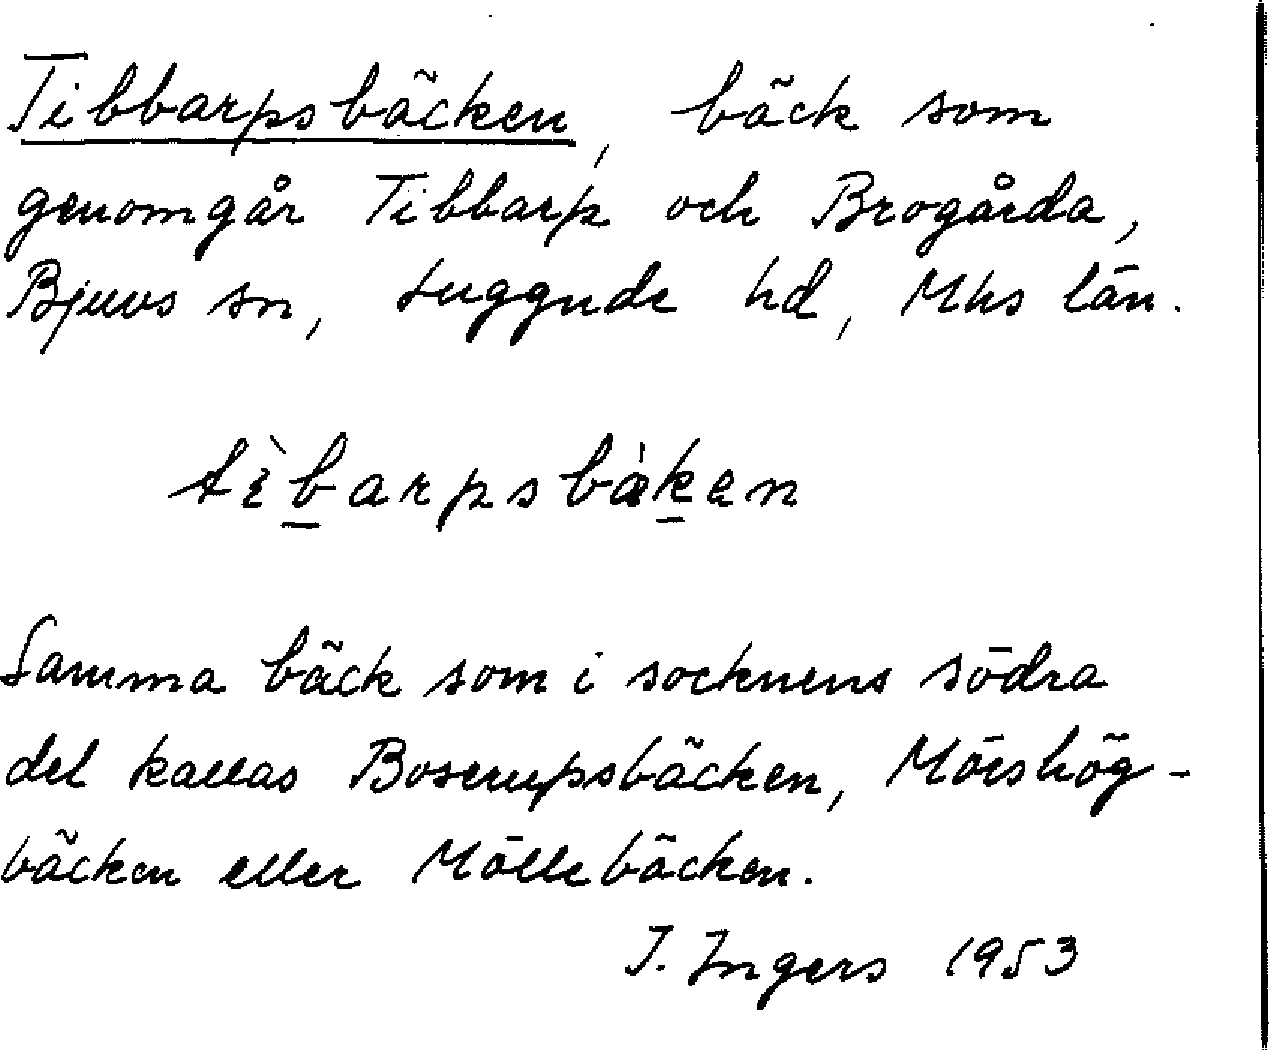 Tibbarpsbäcken, bäck som
genomgår Tibbarp och Brogårda,
Bjuvs sn, Luggude hd, Mhs län.
tìbarpsbákan
Samma bäck som i socknens södra
del kallas Boserupsbäcken, Möeshög-
bäcken eller Möllebäcken.
I. Ingers 1953